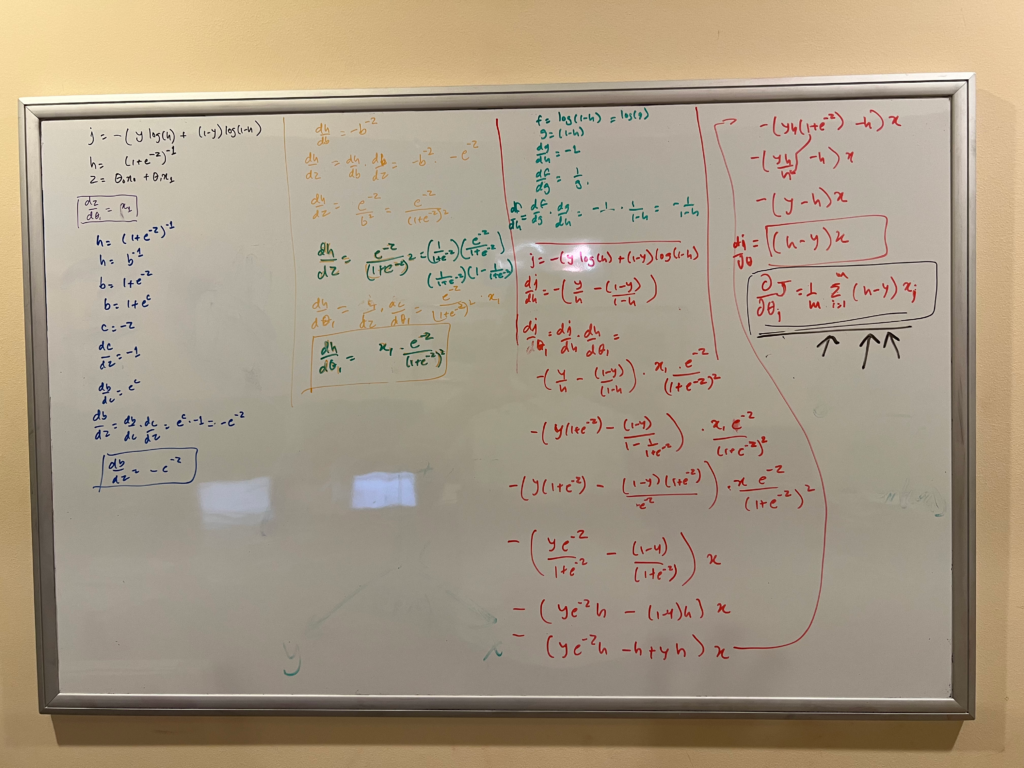 j = -(y log(h) + (1-y) log(1-h)
h = (1+e^-z)^-1
z = θ₀x₀ + θ₁x₁
dz/dθ₁ = x₁
h = (1+e^-z)^-1
h = b^-1
b = 1+e^-z
b = 1+e^c
c = -z
dc/dz = -1
db/dc = e^c
db/dz = db/dc · dc/dz = e^c · -1 = -e^-z
db/dz = -e^-z
dh/db = -b^-2
dh/dz = dh/db · db/dz = -b^-2 · -e^-z
dh/dz = e^-z/b^2 = e^-z/(1+e^-z)^2
dh/dz = e^-z/(1+e^-z)^2 = (1/(1+e^-z))(e^-z/(1+e^-z))
(1/(1+e^-z))(1 - 1/(1+e^-z))
dh/dθ₁ = · dz/dθ₁ = e^-z/(1+e^-z)^2 · x₁
dh/dθ₁ = x₁ · e^-z/(1+e^-z)^2
f = log(1-h) = log(g)
g = (1-h)
dg/dh = -1
df/dg = 1/g.
df/dh = df/dg · dg/dh = -1 · 1/(1-h) = -1/(1-h)
j = -(y log(h) + (1-y) log(1-h)
dj/dh = -(y/h - (1-y)/(1-h))
dj/dθ₁ = dj/dh · dh/dθ₁ =
-(y/h - (1-y)/(1-h)) · x₁ · e^-z/(1+e^-z)^2
-(y(1+e^-z) - (1-y)/(1 - 1/(1+e^-z))) · x₁e^-z/(1+e^-z)^2
-(y(1+e^-z) - (1-y)(1+e^-z)/e^-z) · x e^-z/(1+e^-z)^2
-(ye^-z/(1+e^-z) - (1-y)/(1+e^-z)) x
-(ye^-z h - (1-y)h) x
-(ye^-z h - h + yh) x
-(yh(1+e^-z) - h) x
-(yh/h - h) x
-(y-h) x
dj/dθ = (h-y) x
∂/∂θj J = 1/m Σ i=1 m (h-y) xj
y
x